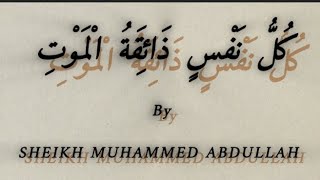 كُلُّ نَفْسٍ ذَائِقَةُ الْمَوْتِ
By
SHEIKH MUHAMMED ABDULLAH